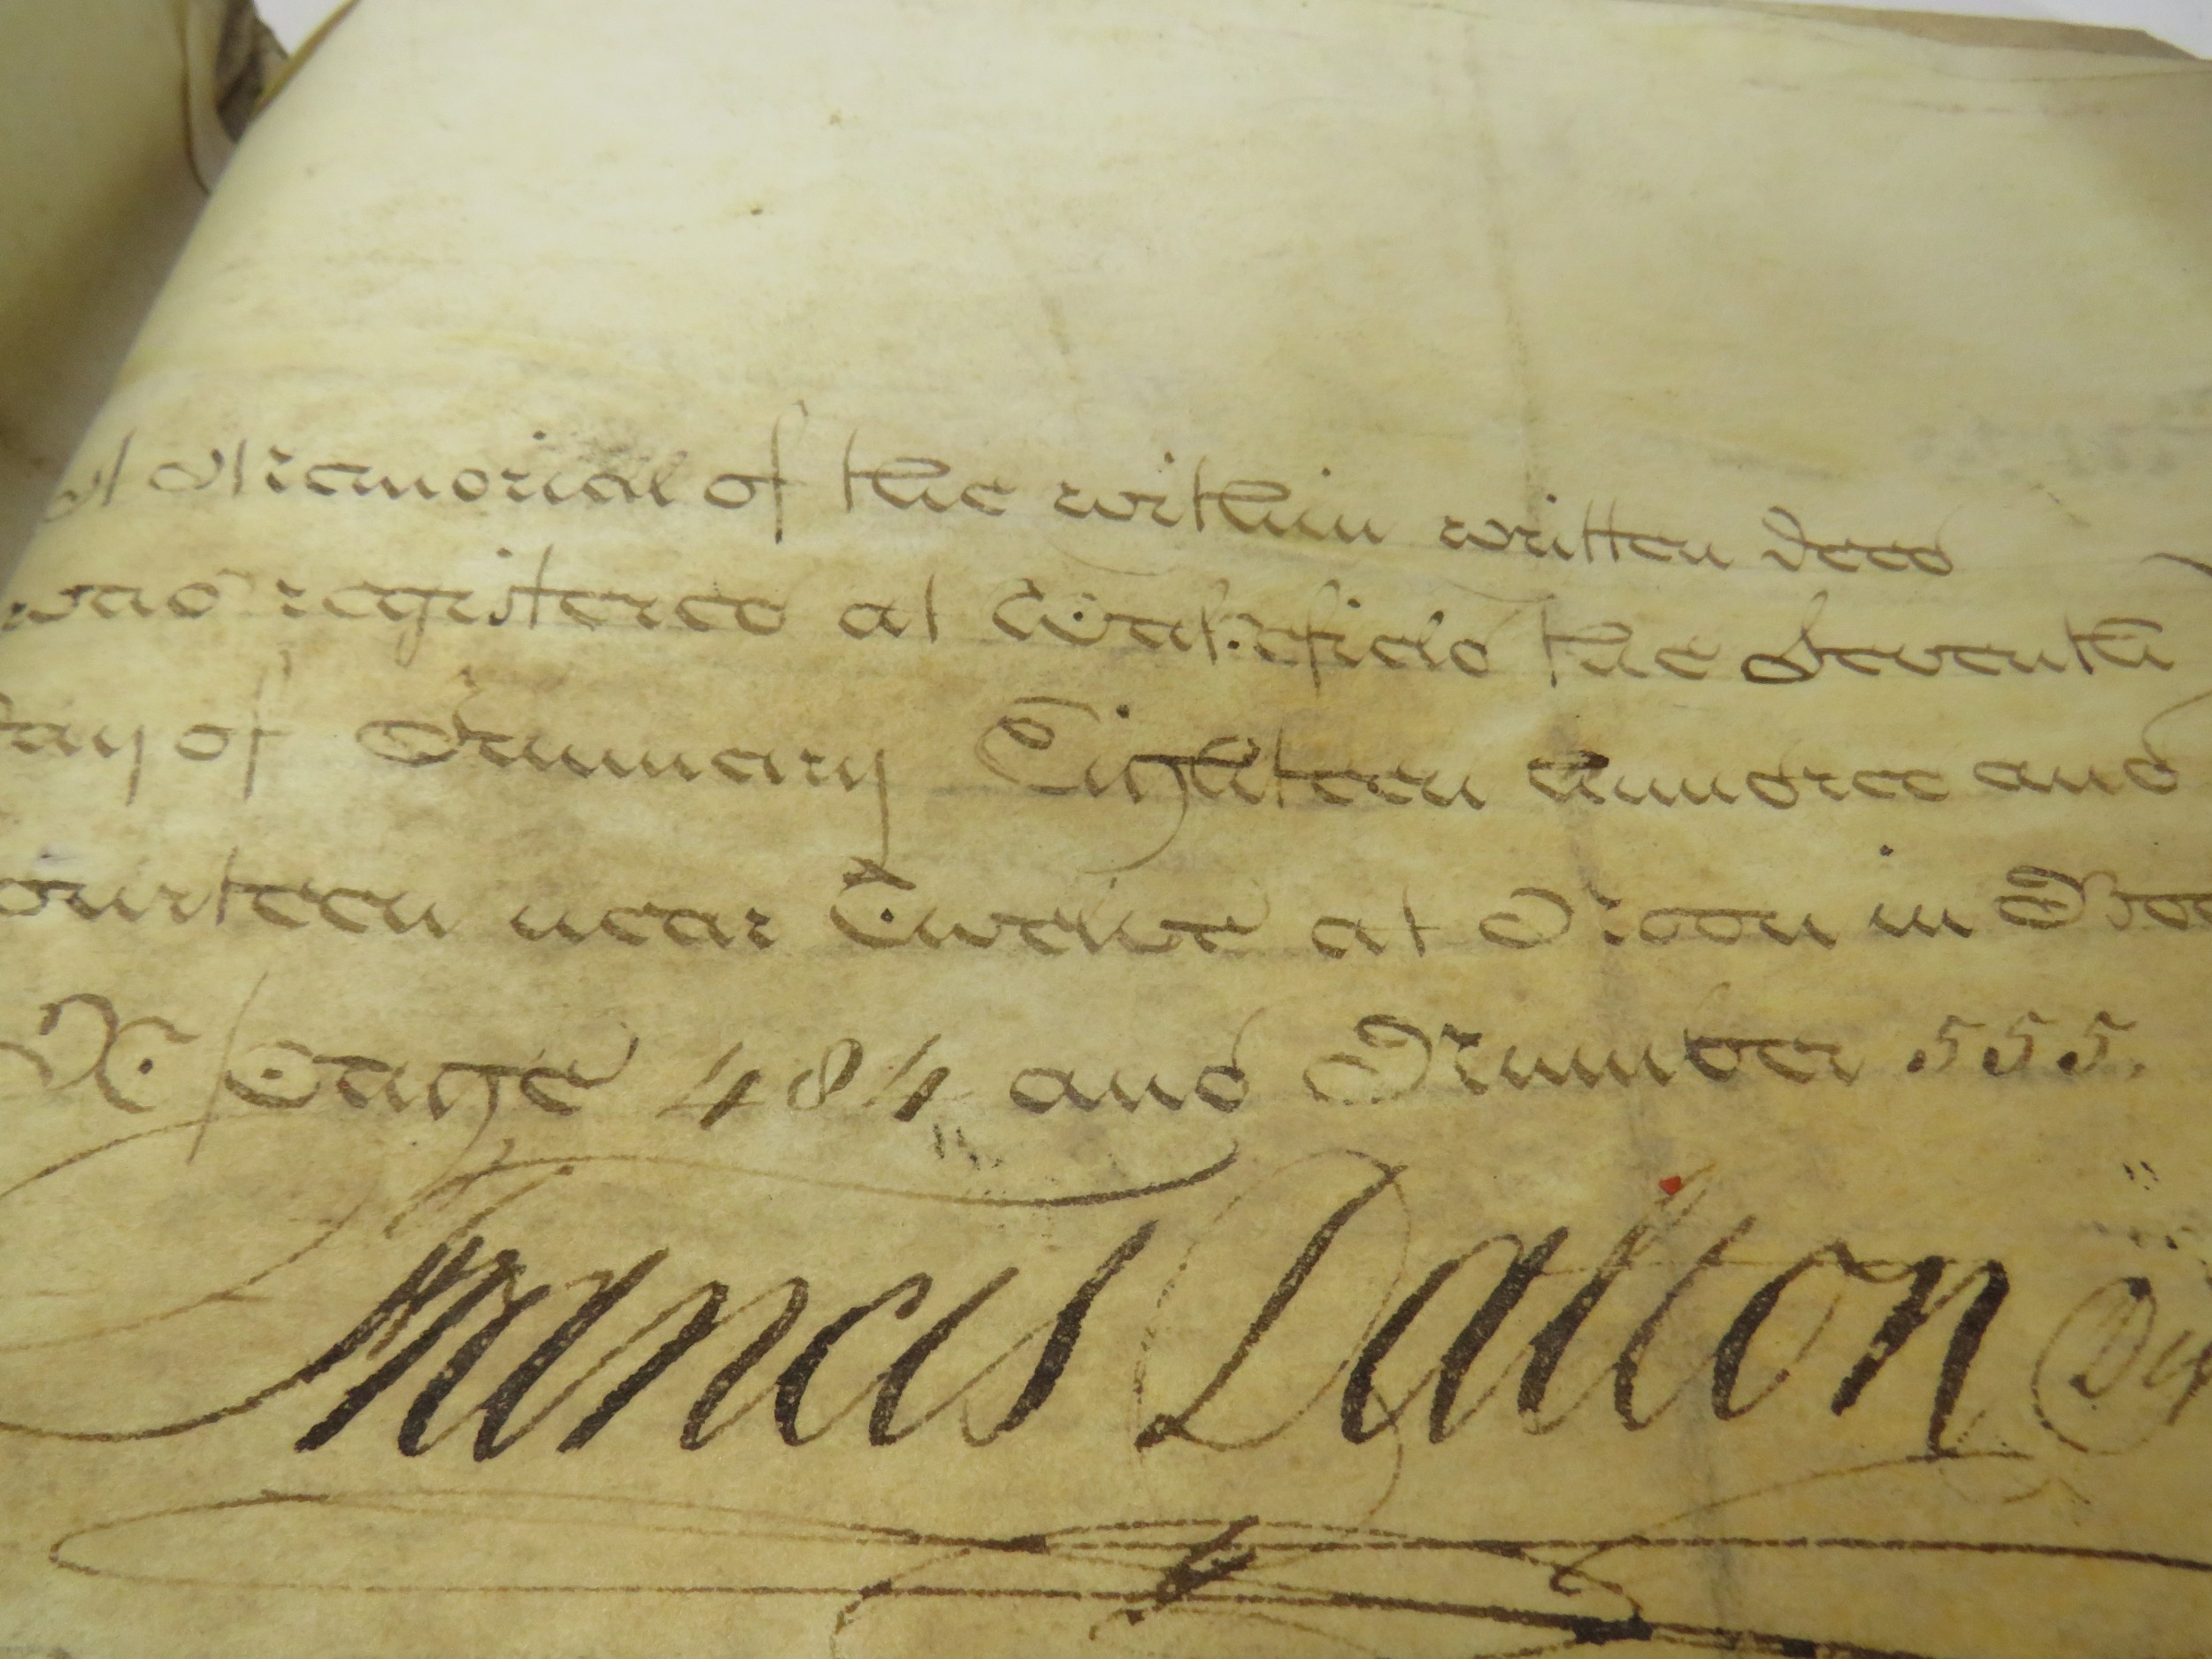 A Memorial of the within written deed
was registered at Wakefield the Seventh
day of January Eighteen hundred and
ourteen near Twelve at Noon in Boo
Page 484 and Number 555.
Francis Dalton Dep